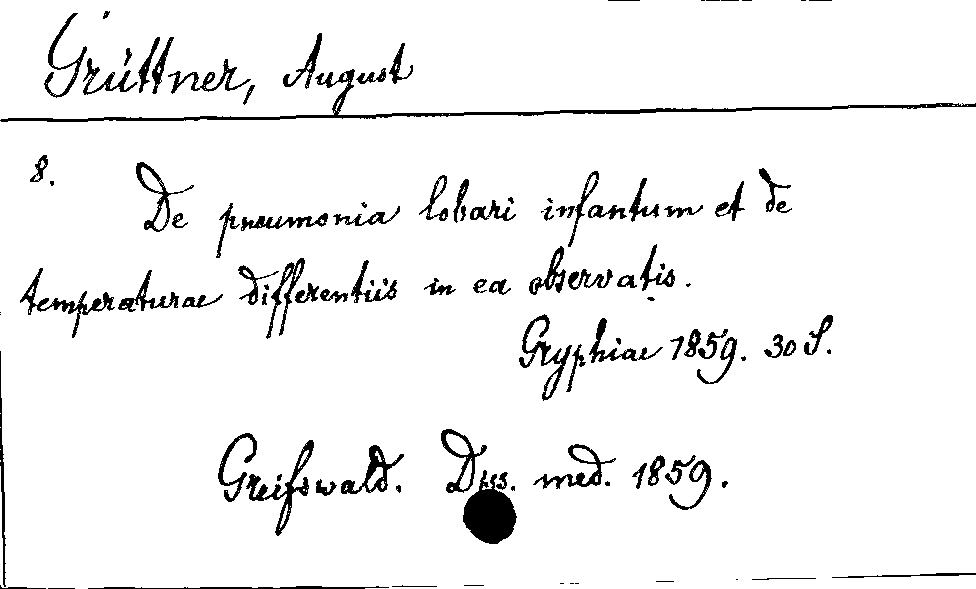 Grüttner, August
8.
De pneumonia lobari infantum et de
temperaturae differentiis in ea observatis.
Gryphiae 1859. 30 S.
Greifswald. Diss. med. 1859.